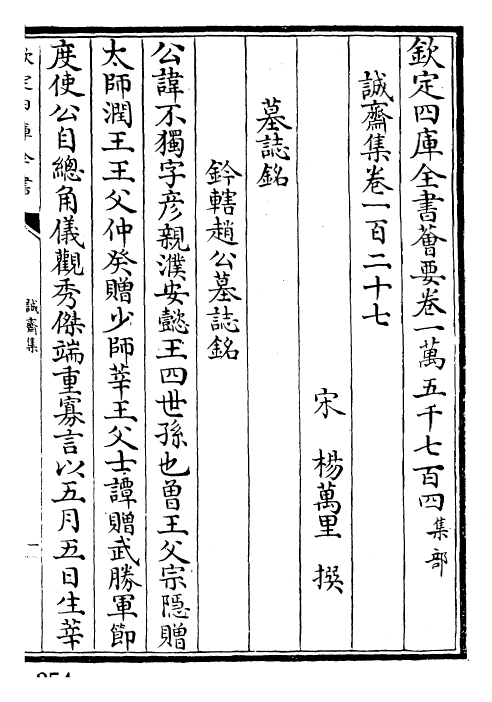 欽定四庫全書薈要卷一萬五千七百四集部
誠齋集卷一百二十七
宋楊萬里撰
墓誌銘
鈐轄趙公墓誌銘
公諱不獨字彦親濮安懿王四世孫也曾王父宗隱贈
太師潤王王父仲癸贈少師莘王父士䜡贈武勝軍節
度使公自總角儀觀秀傑端重寡言以五月五日生莘
欽定四庫全書
誠齋集
一